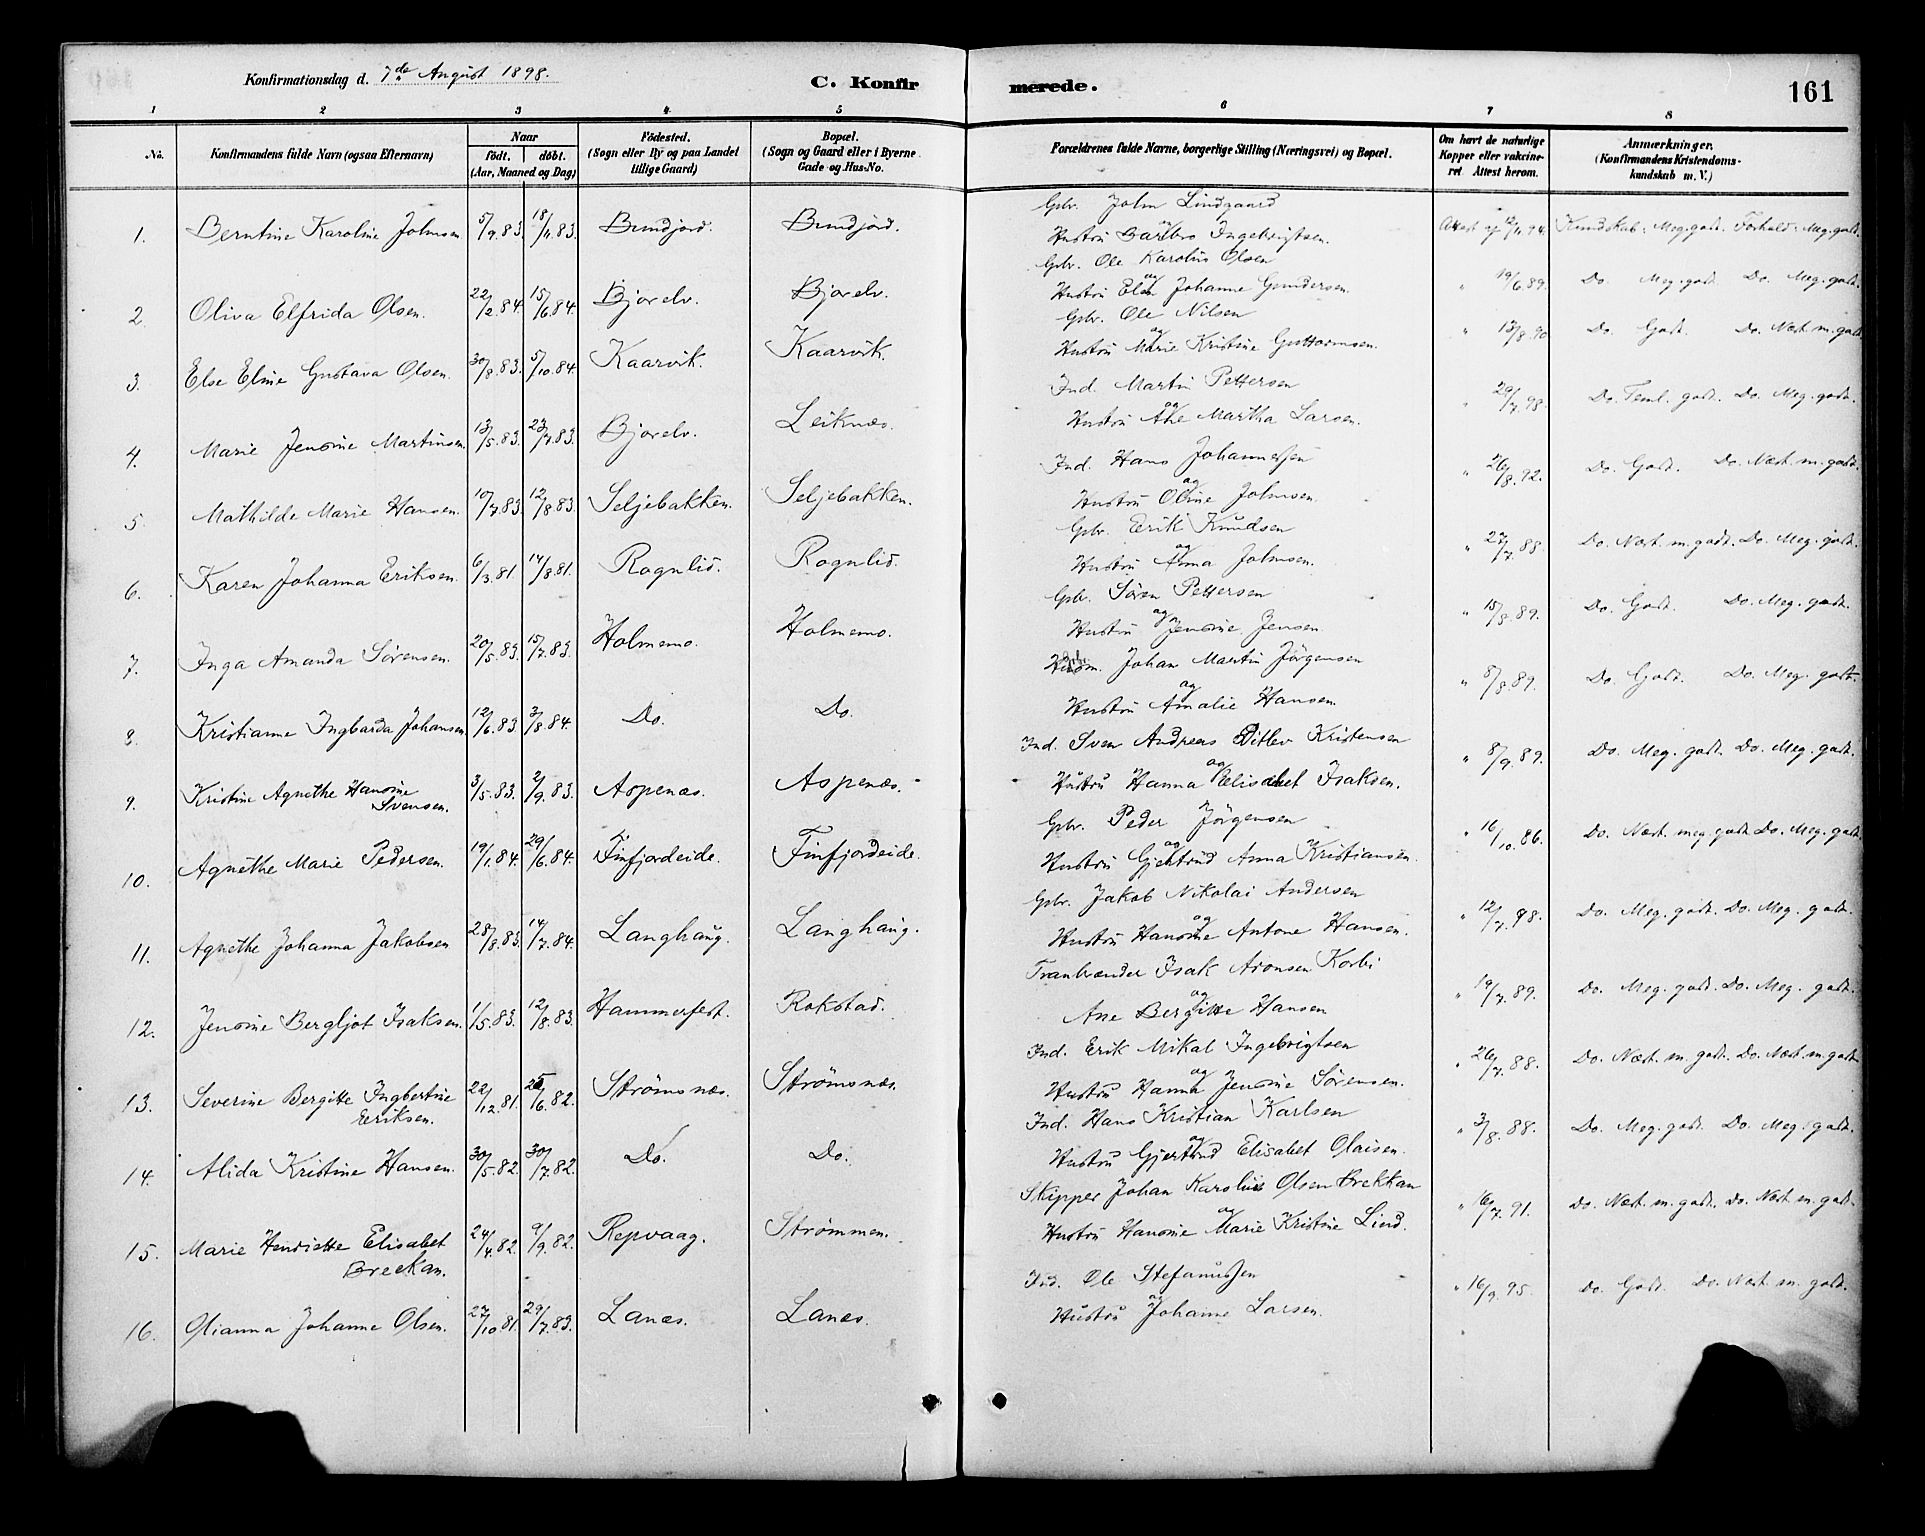 Konfirmationsdag d. 7de August 1898.
C. Konfir
merede.
161
1 2 3 4 5 6 7 8
No.
Konfirmandens fulde Navn (ogsaa Efternavn)
Naar
født. døbt.
(Aar, Maaned og Dag)
Fødested.
(Sogn eller By og paa Landet
tillige Gaard)
Bopæl.
(Sogn og Gaard eller i Byerne
Gade og Hus-No.
Forældrenes fulde Navne, borgerlige Stilling (Næringsvei) og Bopæl.
Om havt de naturlige
Kopper eller vakcine-
ret Attest herom.
Anmærkninger.
(Konfirmandens Kristendoms-
kundskab m. V.)
1. Berntine Karoline Johnsen 5/9.83. 18/11.83. Bundjord. Bundjord. Gbr. John Lindgaard
og
Hustru Barbro Ingebrigtsen. Attest af 12/11.94. Kundskab: Meg. godt. Forhold: Meg. godt.
2 Oliva Elfrida Olsen. 22/2.84. 15/6.84. Bjorelv. Bjorelv. Gbr. Ole Karolius Olsen
og
Hustru Elen Johanne Gundersen. " 19/6.89. Do Meg. godt Do. Meg. godt.
3. Else Eline Gustava Olsen. 30/8.83. 5/10.84. Kaarvik. Kaarvik. Gbr. Ole Nilsen
og
Hustru Marie Kristine Guttormsen. " 13/8.90 Do. Godt. Do. Næst. m. godt
4. Marie Jensine Martinsen. 13/5.83. 23/7.83. Bjorelv. Leiknæs. Ind. Martin Pettersen
og
Hustru Ane Martha Larsen. " 29/7.98. Do. Teml. godt. Do. Meg. godt.
5. Mathilde Marie Hansen. 10/7.83. 12/8.83. Seljebakken. Seljebakken. Ind. Hans Johannessen
og
Hustru Oline Johnsen. " 26/8.92. Do. Godt. Do. Næst. m. godt.
6. Karen Johanna Eriksen. 6/3.81. 14/8.81. Rognlid. Rognlid. Gbr. Erik Knudsen
og
Hustru Anna Johnsen. " 27/7.88. Do. Næst. m. godt. Do. Meg. godt.
7. Inga Amanda Sørensen. 20/5.83. 15/7.83. Holmemo. Holmemo. Gbr. Søren Pettersen
og
Hustru Jensine Jensen. " 15/8.89. Do. Godt. Do. Meg. godt.
8. Kristianne Ingbarda Johansen. 12/6.83. 3/8.84. Do. Do. Johan Martin Jørgensen
og
Hustru Amalie Hansen. " 8/8.89. Do. Godt. Do. Meg. godt.
9. Kristine Agnethe Hansine
Svensen. 3/5.83. 2/9.83. Aspenæs. Aspenæs. Ind. Sven Andreas Ditlev Kristensen
og
Hustru Hanna Elisabet Isaksen. " 8/9.89. Do. Meg. godt. Do. Meg. godt.
10. Agnethe Marie Pedersen. 19/1.84. 29/6.84. Finfjordeide. Finfjordeide. Gbr. Peder Jørgensen
og
Hustru Gjertrud Anna Kristiansen. " 16/10.86. Do. Næst. meg. godt Do. Meg. godt
11. Agnethe Johanna Jakobsen 28/8.83. 14/7.84. Langhaug. Langhaug. Gbr. Jakob Nikolai Andersen
og
Hustru Hansine Antone Hansen. " 12/7.98. Do. Meg. godt. Do. Meg. godt.
12. Jensine Bergljot Isaksen. 1/5.83. 12/8.83. Hammerfest. Rokstad. Tranbrænder Isak Aronsen Korbi
og
Ane Bergitte Hansen " 19/7.89. Do. Meg. godt. Do. Meg. godt.
13. Severine Bergitte Ingbertine
Eriksen. 22/12.81. 25/6.82. Strømsnæs. Strømsnæs. Ind. Erik Mikal Ingebrigtsen
og
Hustru Hanna Jensine Sørensen. " 26/7.88. Do. Næst. m. godt. Do. Næst. m. godt
14. Alida Kristine Hansen. 30/5.82. 30/7.82. Do. Do. Ind. Hans Kristian Karlsen
og
Hustru Gjertrud Elisabet Olaisen. " 3/8.88. Do. Meg. godt. Do. Meg. godt.
15. Marie Henriette Elisabet
Breckan. 24/4.82. 9/9.82. Repvaag. Strømmen. Skipper Johan Karolius Olsen Brekkan
og
Hustru Hansine Marie Kristine Lind. " 16/7.91. Do. Næst. m. godt. Do. Næst. m. godt.
16. Olianna Johanne Olsen. 27/10.81. 29/7.83. Lanes. Lanes. Ind. Ole Stefanussen
og
Hustru Johanne Larsen. " 16/9.95. Do. Godt. Do. Næst. m. godt.